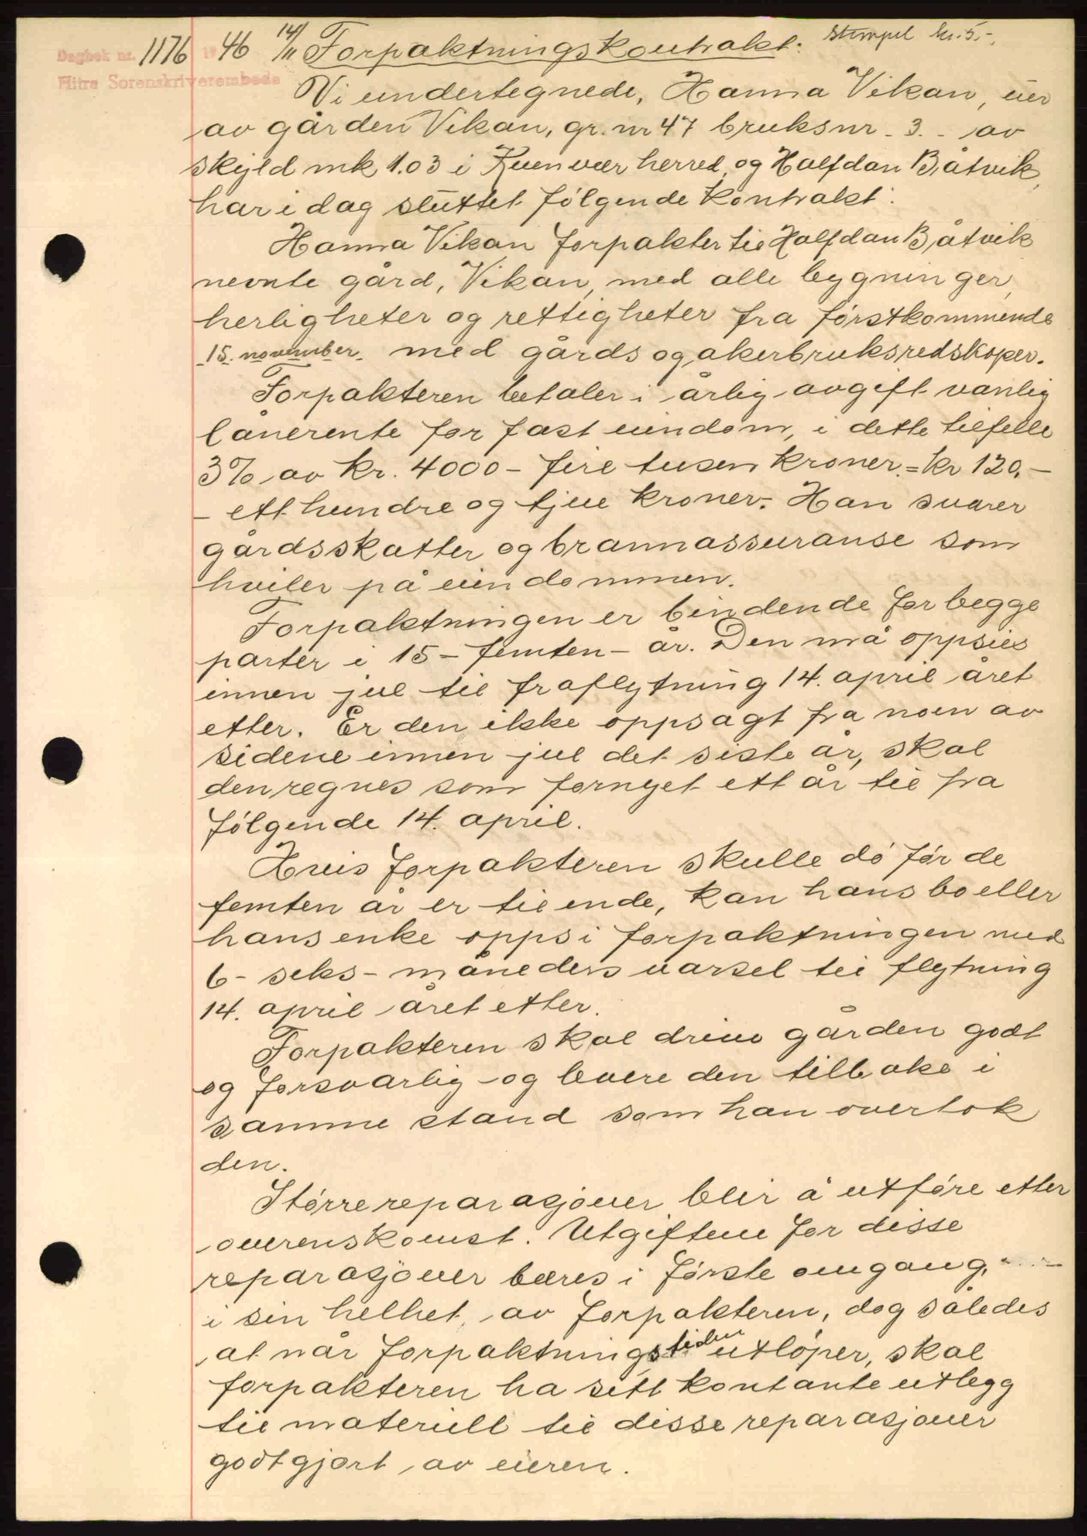 Dagbok nr. 1176 19 46 14/11 Forpaktningskontrakt. Stempel kr. 5.-.
Hitra Sorenskriverembede
Vi undertegnede, Hanna Vikan, eier
av gården Vikan, gr. nr 47 bruksnr. 3. av
skyld mk 1.03 i Kvenvær herred, og Halfdan Båtvik,
har i dag sluttet følgende kontrakt:
Hanna Vikan forpakter til Halfdan Båtvik
nevnte gård, Vikan, med alle bygninger,
herligheter og rettigheter fra førstkommende
15. november. med gårds og åkerbruksredskaper.
Forpakteren betaler i årlig avgift vanlig
lånerente for fast eiendom, i dette tilfelle
3% av kr. 4000 - fire tusen kroner. = kr 120,-
- ett hundre og tjue kroner. Han svarer
gårdsskatter og brannassuranse som
hviler på eiendommen.
Forpaktningen er bindende for begge
parter i 15 - femten - år. Den må oppsies
innen jul til fraflytning 14. april året
etter. Er den ikke oppsagt fra noen av
sidene innen jul det siste år, skal
den regnes som fornyet ett år til fra
følgende 14. april.
Hvis forpakteren skulle dø før de
femten år er til ende, kan hans bo eller
hans enke oppsi forpaktningen med
6 - seks - måneders varsel til flytning
14. april året etter.
Forpakteren skal drive gården godt
og forsvarlig og levere den tilbake i
samme stand som han overtok
den.
Større reparasjoner blir å utføre etter
overenskomst. Utgiftene for disse
reparasjoner bæres i første omgang,
i sin helhet, av forpakteren, dog således
at når forpaktningstiden utløper, skal
forpakteren ha sitt kontante utlegg
til materiell til disse reparasjoner
godtgjort av eieren.